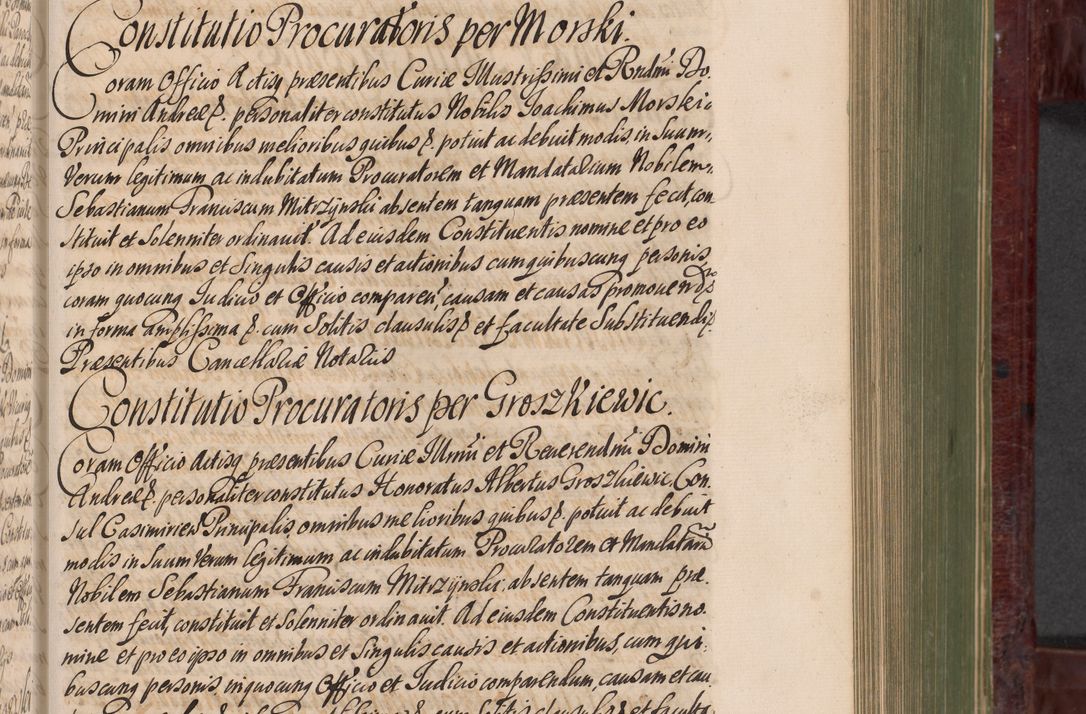 Constitutio Procuratoris per Morski.
Coram Officio Actisq præsentibus Curiæ Illustrissimi et Rndmi Do-
mini Andreæ &. personaliter constitutus Nobilis Joachimus Morski
Principalis omnibus melioribus quibus &. potuit ac debuit modis, in Suum
Verum legitimum ac indubitatum Procuratorem et Mandatarium Nobilem
Sebastianum Franciscum Mitrzÿnski absentem tanquam præsentem fecit, con
stituit et Solenniter ordinauit. Ad eiusdem Constituentis nomine et pro eo
ipso in omnibus et Singulis causis et actionibus cum quibuscunq personis,
coram quocunq Judicio et Officio comparen, causam et causas promouend
in forma amplissima &. cum Solitis clausulis & et facultate Substituendi &
Præsentibus Cancellariæ Notariis
Constitutio Procuratoris per GroszKiewic.
Coram Officio Actisq præsentibus Curiæ Illrmi et Reuerendmi Domini
Andreæ &. personaliter constitutus Honoratus Albertus Groszkiewic Con
sul Casimirien Principalis, omnibus melioribus quibus &. potuit ac debuit
modis in Suum Verum legitimum ac indubitatum Procuratorem et Mandatariũ
Nobilem Sebastianum Franciscum Mitrzÿnski, absentem tanquam præ
sentem fecit, constituit et Solenniter ordinauit. Ad eiusdem Constituentis no
mine et pro eo ipso in omnibus et Singulis causis et actionibus, cum qui
buscunq personis, in quocunq Officio et Judicio comparendum, causam et cau